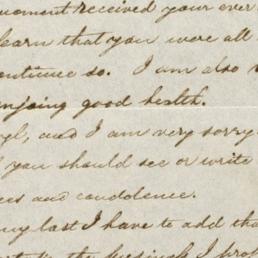 moment received your ever
learn that you were all
continue so. I am also
enjoing good health.
and I am very sorry
you should see or write
and condolence.
my last I have to add tha
the I